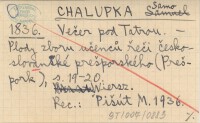 CHALUPKA Samo
1836. Večer pod Tatrou.
Plody zboru učenců řeči česko-
slovanské prešporského (Preš-
pork), s. 19-20.
Wiersz.
Rec.: Pišút M. 1936.